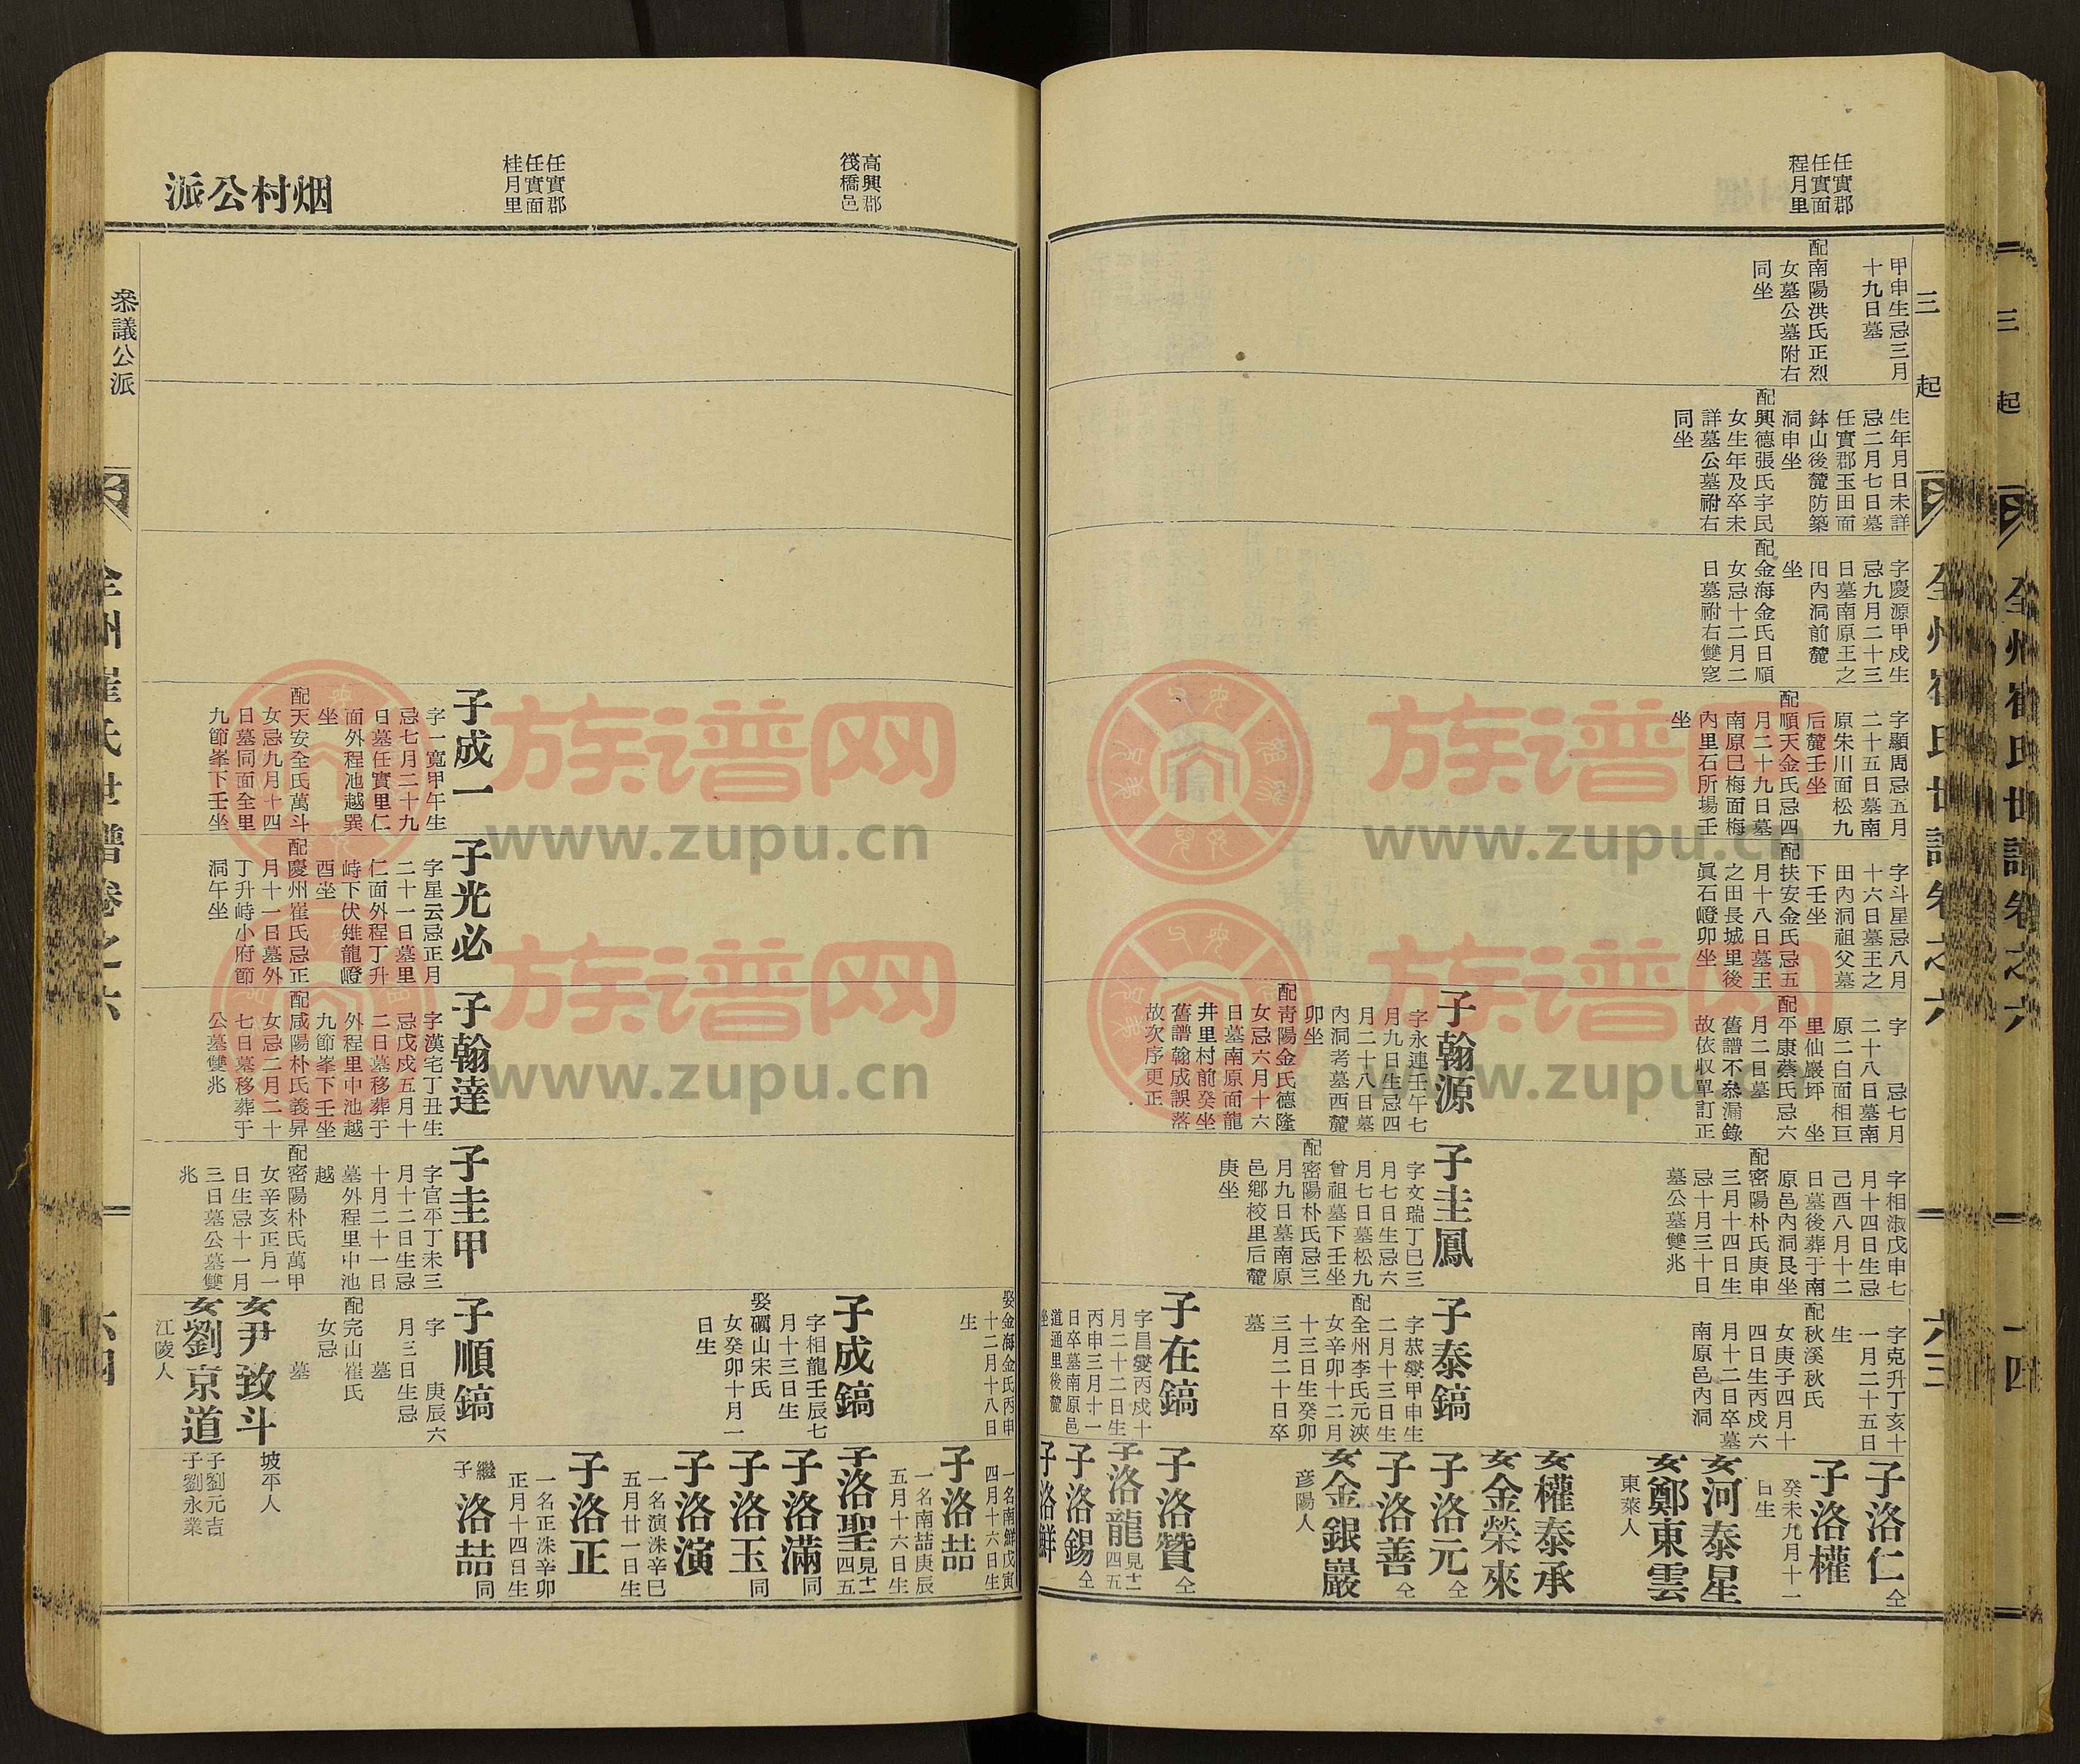 任實郡
任實面
程月里
三 起
全州崔氏世譜卷之六
六三
一四
甲申生忌三月
十九日墓
配南陽洪氏正烈
女墓公墓附右
同坐
生年月日未詳
忌二月七日墓
任實郡玉田面
鉢山後麓防築
洞申坐
配興德張氏宇民
女生年及卒未
詳墓公墓祔右
同坐
字慶源甲戌生
忌九月二十三
日墓南原王之
田內洞前麓
坐
配金海金氏日順
女忌十二月二
日墓祔右雙窆
字顯周忌五月
二十五日墓南
原朱川面松九
后麓壬坐
配順天金氏忌四
月二十九日墓
南原巳梅面梅
內里石所場壬
坐
字斗星忌八月
十六日墓王之
田內洞祖父墓
下壬坐
配扶安金氏忌五
月十八日墓王
之田長城里後
眞石嶝卯坐
字 忌七月
二十八日墓南
原二白面相巨
里仙巖坪 坐
配平康蔡氏忌六
月二日墓
舊譜不叅漏錄
故依收單訂正
子翰源
字永連壬午七
月九日生忌四
月二十八日墓
內洞考墓西麓
卯坐
配靑陽金氏德隆
女忌六月十六
日墓南原面龍
井里村前癸坐
舊譜翰成誤落
故次序更正
字相淑戊申七
月十四日生忌
己酉八月十二
日墓後葬于南
原邑內洞艮坐
配密陽朴氏庚申
三月十四日生
忌十月三十日
墓公墓雙兆
子圭鳳
字文瑞丁巳三
月七日生忌六
月七日墓松九
曾祖墓下壬坐
配密陽朴氏忌三
月九日墓南原
邑鄕校里后麓
庚坐
字克升丁亥十
一月二十五日
生
配秋溪秋氏
女庚子四月十
四日生丙戌六
月十二日卒墓
南原邑內洞
子泰鎬
字恭燮甲申生
二月十三日生
配全州李氏元浹
女辛卯十二月
十三日生癸卯
三月二十日卒
墓
子在鎬
字昌燮丙戌十
月二十二日生
丙申三月十一
日卒墓南原邑
道通里後麓
坐
子洛仁仝
子洛權
癸未九月十一
日生
女河泰星
女鄭東雲
東萊人
女權泰承
女金榮來
子洛元仝
子洛善仝
女金銀巖
彦陽人
子洛贊仝
子洛龍見十一四五
子洛錫仝
子洛鮮
高興郡
筏橋邑
任實郡
任實面
桂月里
烟村公派
娶金海金氏丙申
十二月十八日
生
子成鎬
字相龍壬辰七
月十三日生
娶礪山宋氏
女癸卯十月一
日生
一名南鮮戊寅
四月十六日生
子洛喆
一名南喆庚辰
五月十六日生
子洛聖見十一四五
子洛滿同
子洛玉同
子洛演
一名演洙辛巳
五月廿一日生
子洛正
一名正洙辛卯
正月十四日生
繼子洛喆同
子成一
字一寬甲午生
忌七月二十九
日墓任實里仁
面外程池越巽
坐
配天安全氏萬斗
女忌九月十四
日墓同面全里
九節峯下壬坐
子光必
字星云忌正月
二十一日墓里
仁面外程丁升
峙下伏雉龍嶝
酉坐
配慶州崔氏忌正
月十一日墓外
丁升峙小府節
洞午坐
子翰達
字漢宅丁丑生
忌戊戌五月十
二日墓移葬于
外程里中池越
九節峯下壬坐
配咸陽朴氏義昇
女忌二月二十
七日墓移葬于
公墓雙兆
子圭甲
字官平丁未三
月十二日生忌
十月二十一日
墓外程里中池
越
配密陽朴氏萬甲
女辛亥正月一
日生忌十一月
三日墓公墓雙
兆
子順鎬
字 庚辰六
月三日生忌
墓
配完山崔氏
女忌
墓
女尹致斗
坡平人
女劉京道
江陵人
子劉元吉
子劉永業
叅議公派
全州崔氏世譜卷之六
六四
族谱网
www.zupu.cn
族谱网
www.zupu.cn
族谱网
www.zupu.cn
族谱网
www.zupu.cn